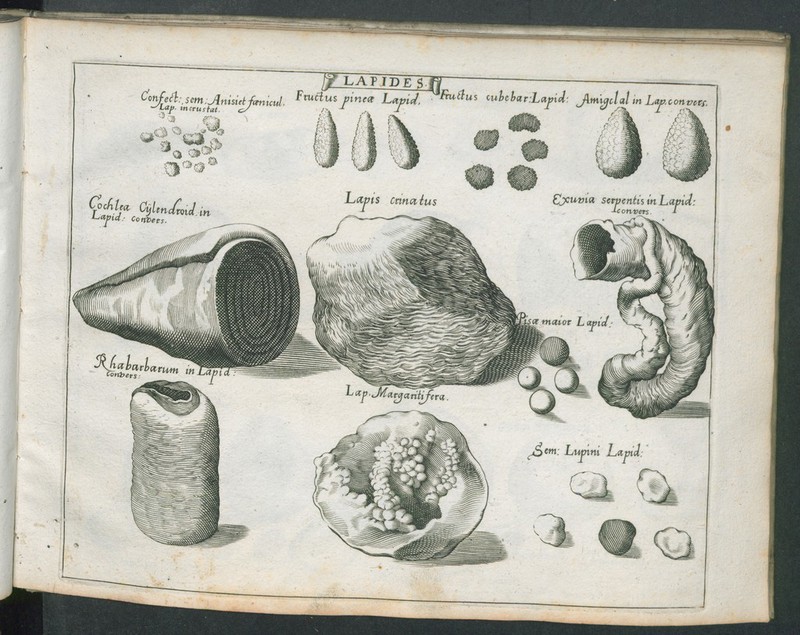 LAPIDES
Confect: sem: Anisiet fœnicul.
Lap. incrustat.
Fructus pineæ Lapid.
Fructus cubebar: Lapid:
Amigdal in Lap. convers.
Cochlea Cÿlendroid. in
Lapid: convers.
Lapis crinatus
Exuvia serpentis in Lapid:
convers.
Pisæ maior Lapid:
Rhabarbarum in Lapid:
convers:
Lap. Margaritifera.
Sem: Lupini Lapid: